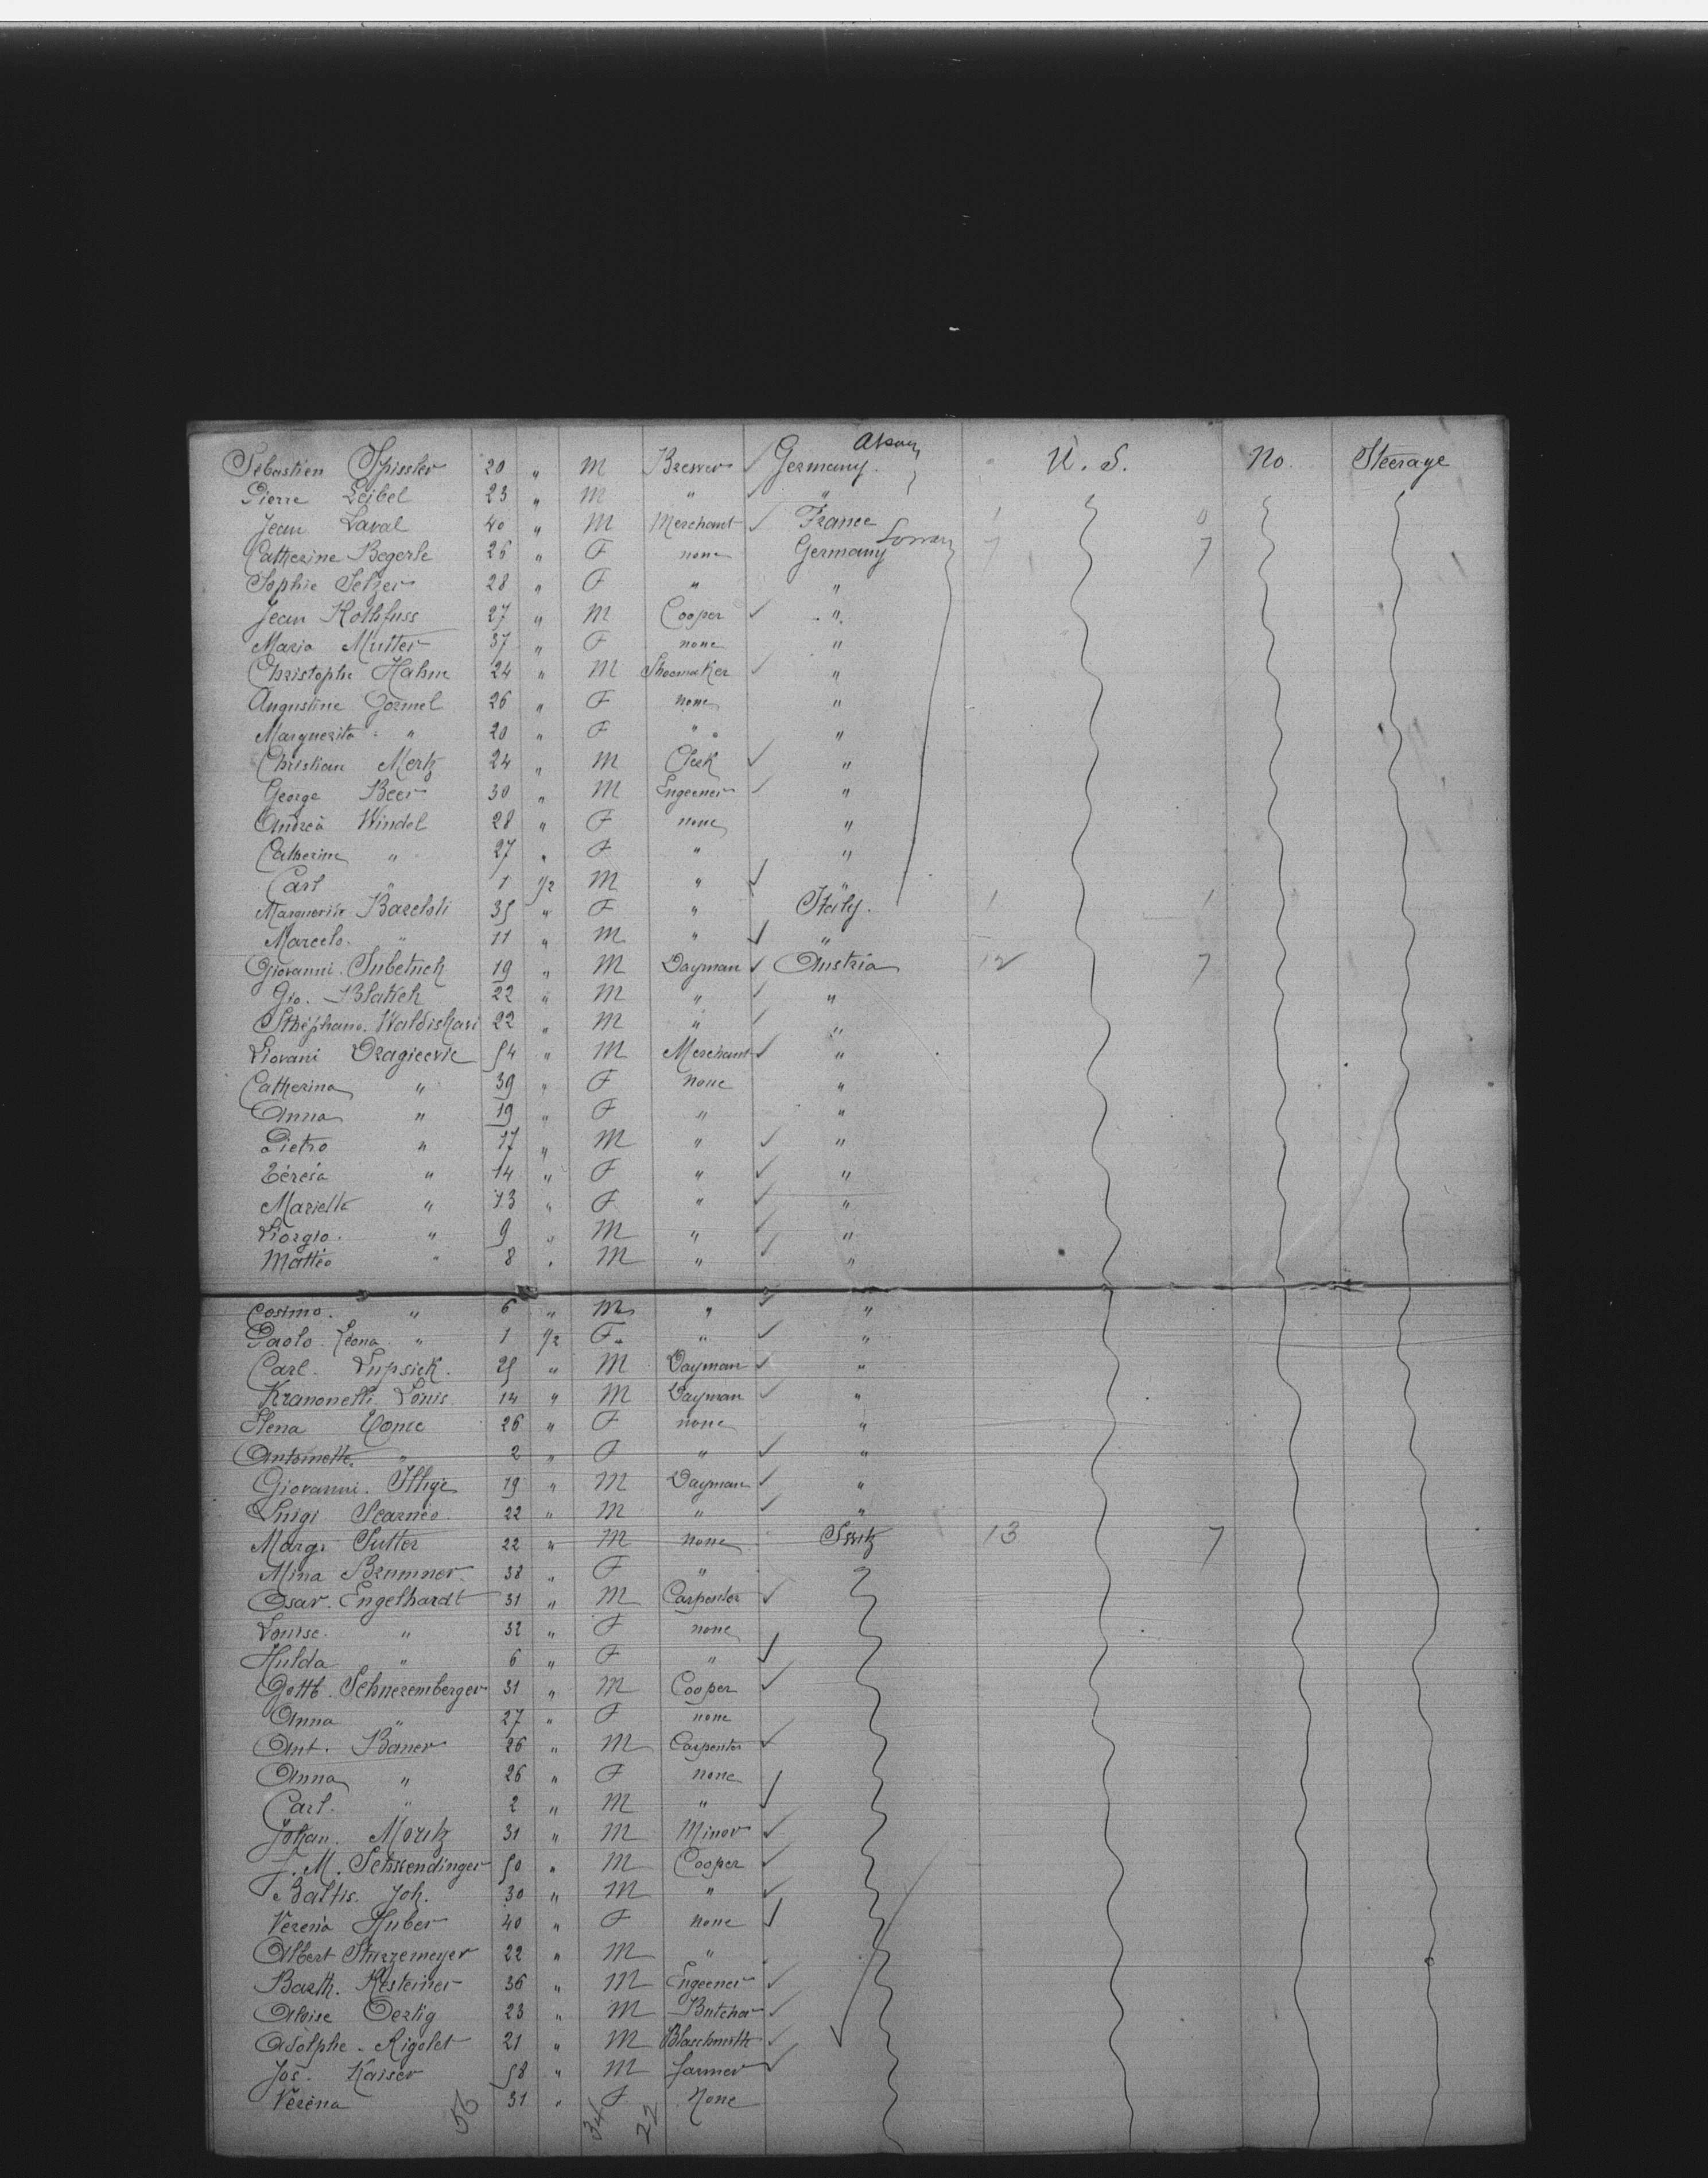 Sebastien Spissler 20 " M Brewer ✓ Germany. U. S. No. Steerage
Pierre Leibel 23 " M " ✓ "
Jean Laval 40 " M Merchant ✓ France 1 0
Catherine Begerle 26 " F none Germany 7 7
Sophie Selzer 28 " F " "
Jean Rothfuss 27 " M Cooper ✓ "
Maria Mutter 37 " F none "
Christophe Hahm 24 " M Shoomaker ✓ "
Augustine Gormel 26 " F none "
Marguerite " 20 " F " "
Christian Mertz 24 " M Clerk ✓ "
George Beer 30 " M Engeener ✓ "
Andrea Windel 28 " F none "
Catherine " 27 " F " "
Carl " 1 1/2 M " ✓ "
Marguerite 35 " F " Italy. 1 1
Marcelo. " 11 " M " ✓ "
Giovanni. Subetuch 19 " M Dayman ✓ Austria 12 7
Gio. Blatich 22 " M " ✓ "
Stéphano. 22 " M " ✓ "
Giovani Dragicevic 54 " M Merchant ✓ "
Catherina " 39 " F none "
Anna " 19 " F " "
Pietro " 17 " M " ✓ "
Térésa " 14 " F " ✓ "
Marietta " 13 " F " ✓ "
Giorgio. " 9 " M " ✓ "
Mattéo " 8 " M " ✓ "
Cosimo. " 6 " M " ✓ "
Paolo. Leona " 1 1/2 F " ✓ "
Carl. Lupsick. 25 " M Dayman ✓ "
Kranonetti Louis 14 " M Dayman ✓ "
Elena Come 26 " F none "
Antoinette. " 2 " F " ✓ "
Giovanni. 19 " M Dayman ✓ "
Luigi Scarneo. 22 " M " ✓ "
Marg. Sutter 22 " M none Switz 13 7
Mina Brunner. 38 " F "
Osar. Engelhardt 31 " M Carpenter ✓
Louise. " 32 " F none
Hulda " 6 " F " ✓
Gottb. Schneremberger 31 " M Cooper ✓
Anna " 27 " F none
Ant. Bauer 26 " M Carpenter ✓
Anna " 26 " F none
Carl. " 2 " M " ✓
Johan. Moritz 31 " M Minor ✓
J. M. Schwendinger 50 " M Cooper ✓
Baltis. Joh. 30 " M " ✓
Verena Huber 40 " F none ✓
Albert Sturzemeyer 22 " M "
Barth. Kesteiner 36 " M Engeener ✓
Aloise Oertig 23 " M Butcher ✓
Adolphe. Rigolet 21 " M Blacksmith ✓
Jos. Kaiser 58 " M farmer ✓
Verena 31 " F None
56 34 22